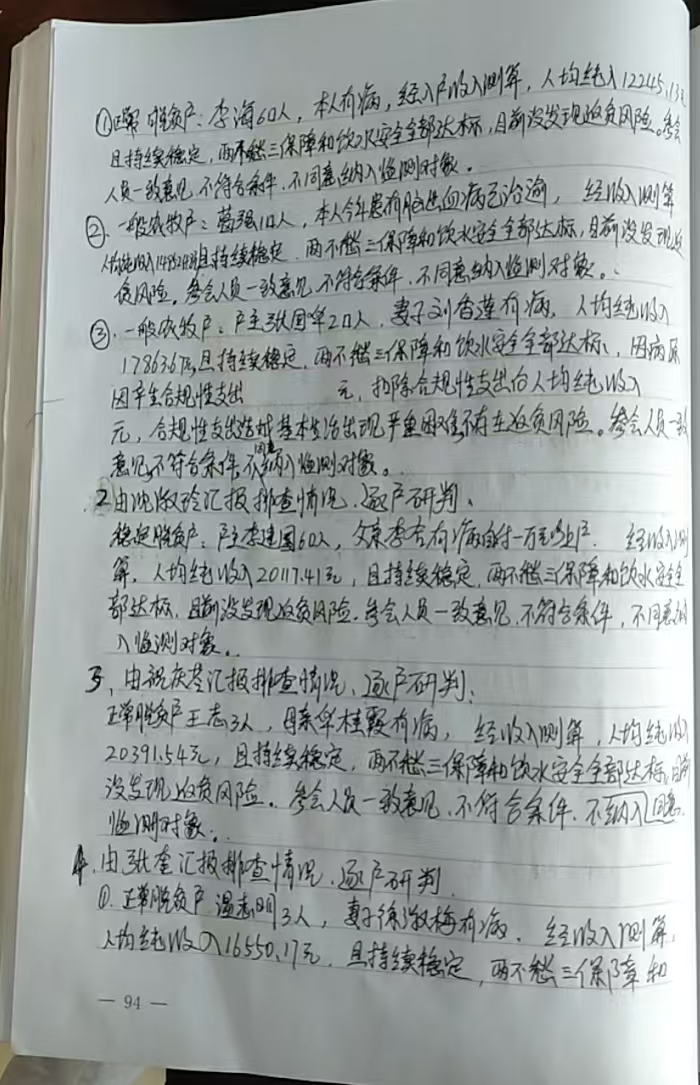 ①正常脱贫户：李海60人，本人有病，经入户收入测算，人均纯入12245.13
且持续稳定，两不愁三保障和饮水安全全部达标，目前没发现返贫风险。参会
人员一致意见，不符合条件，不同意纳入监测对象。
②、一般农牧户：强10人，本人今年患有脑出血病已治渝，经收入测算
人均纯收入且持续稳定，两不愁三保障和饮水安全全部达标，目前没发现返
贫风险。参会人员一致意见，不符合条件，不同意纳入监测对象。
③、一般农牧户：户主张国20人，妻子刘香莲有病，人均纯收入
17863.6元，且持续稳定，两不愁三保障和饮水安全全部达标，因病原
因产生合规性支出 元，扣除合规性支出后人均纯收入
元，合规性支出造成基本生活出现严重困难，不存在返贫风险。参会人员一致
意见，不符合条件，不同意纳入监测对象。
2由沈淑玲汇报排查情况，逐户研判、
稳定脱贫户：户主李建国60人，父亲李有病自付一万元以上户。经收入测
算，人均纯收入20117.41元，且持续稳定，两不愁三保障和饮水安全全
部达标，目前没发现返贫风险。参会人员一致意见，不符合条件，不同意纳
入监测对象。
3、由祝庆汇报排查情况、逐户研判；
正常脱贫户王志3人，母亲桂霞有病，经收入测算，人均纯收入
20391.54元，且持续稳定，两不愁三保障和饮水安全全部达标，目前
没发现返贫风险。参会人员一致意见，不符合条件，不纳入同意
监测对象。
4、由张奎汇报排查情况，逐户研判
①、正常脱贫户温志明3人，妻子徐淑梅有病，经收入测算，
人均纯收入16550.17元，且持续稳定，两不愁三保障和
— 94 —